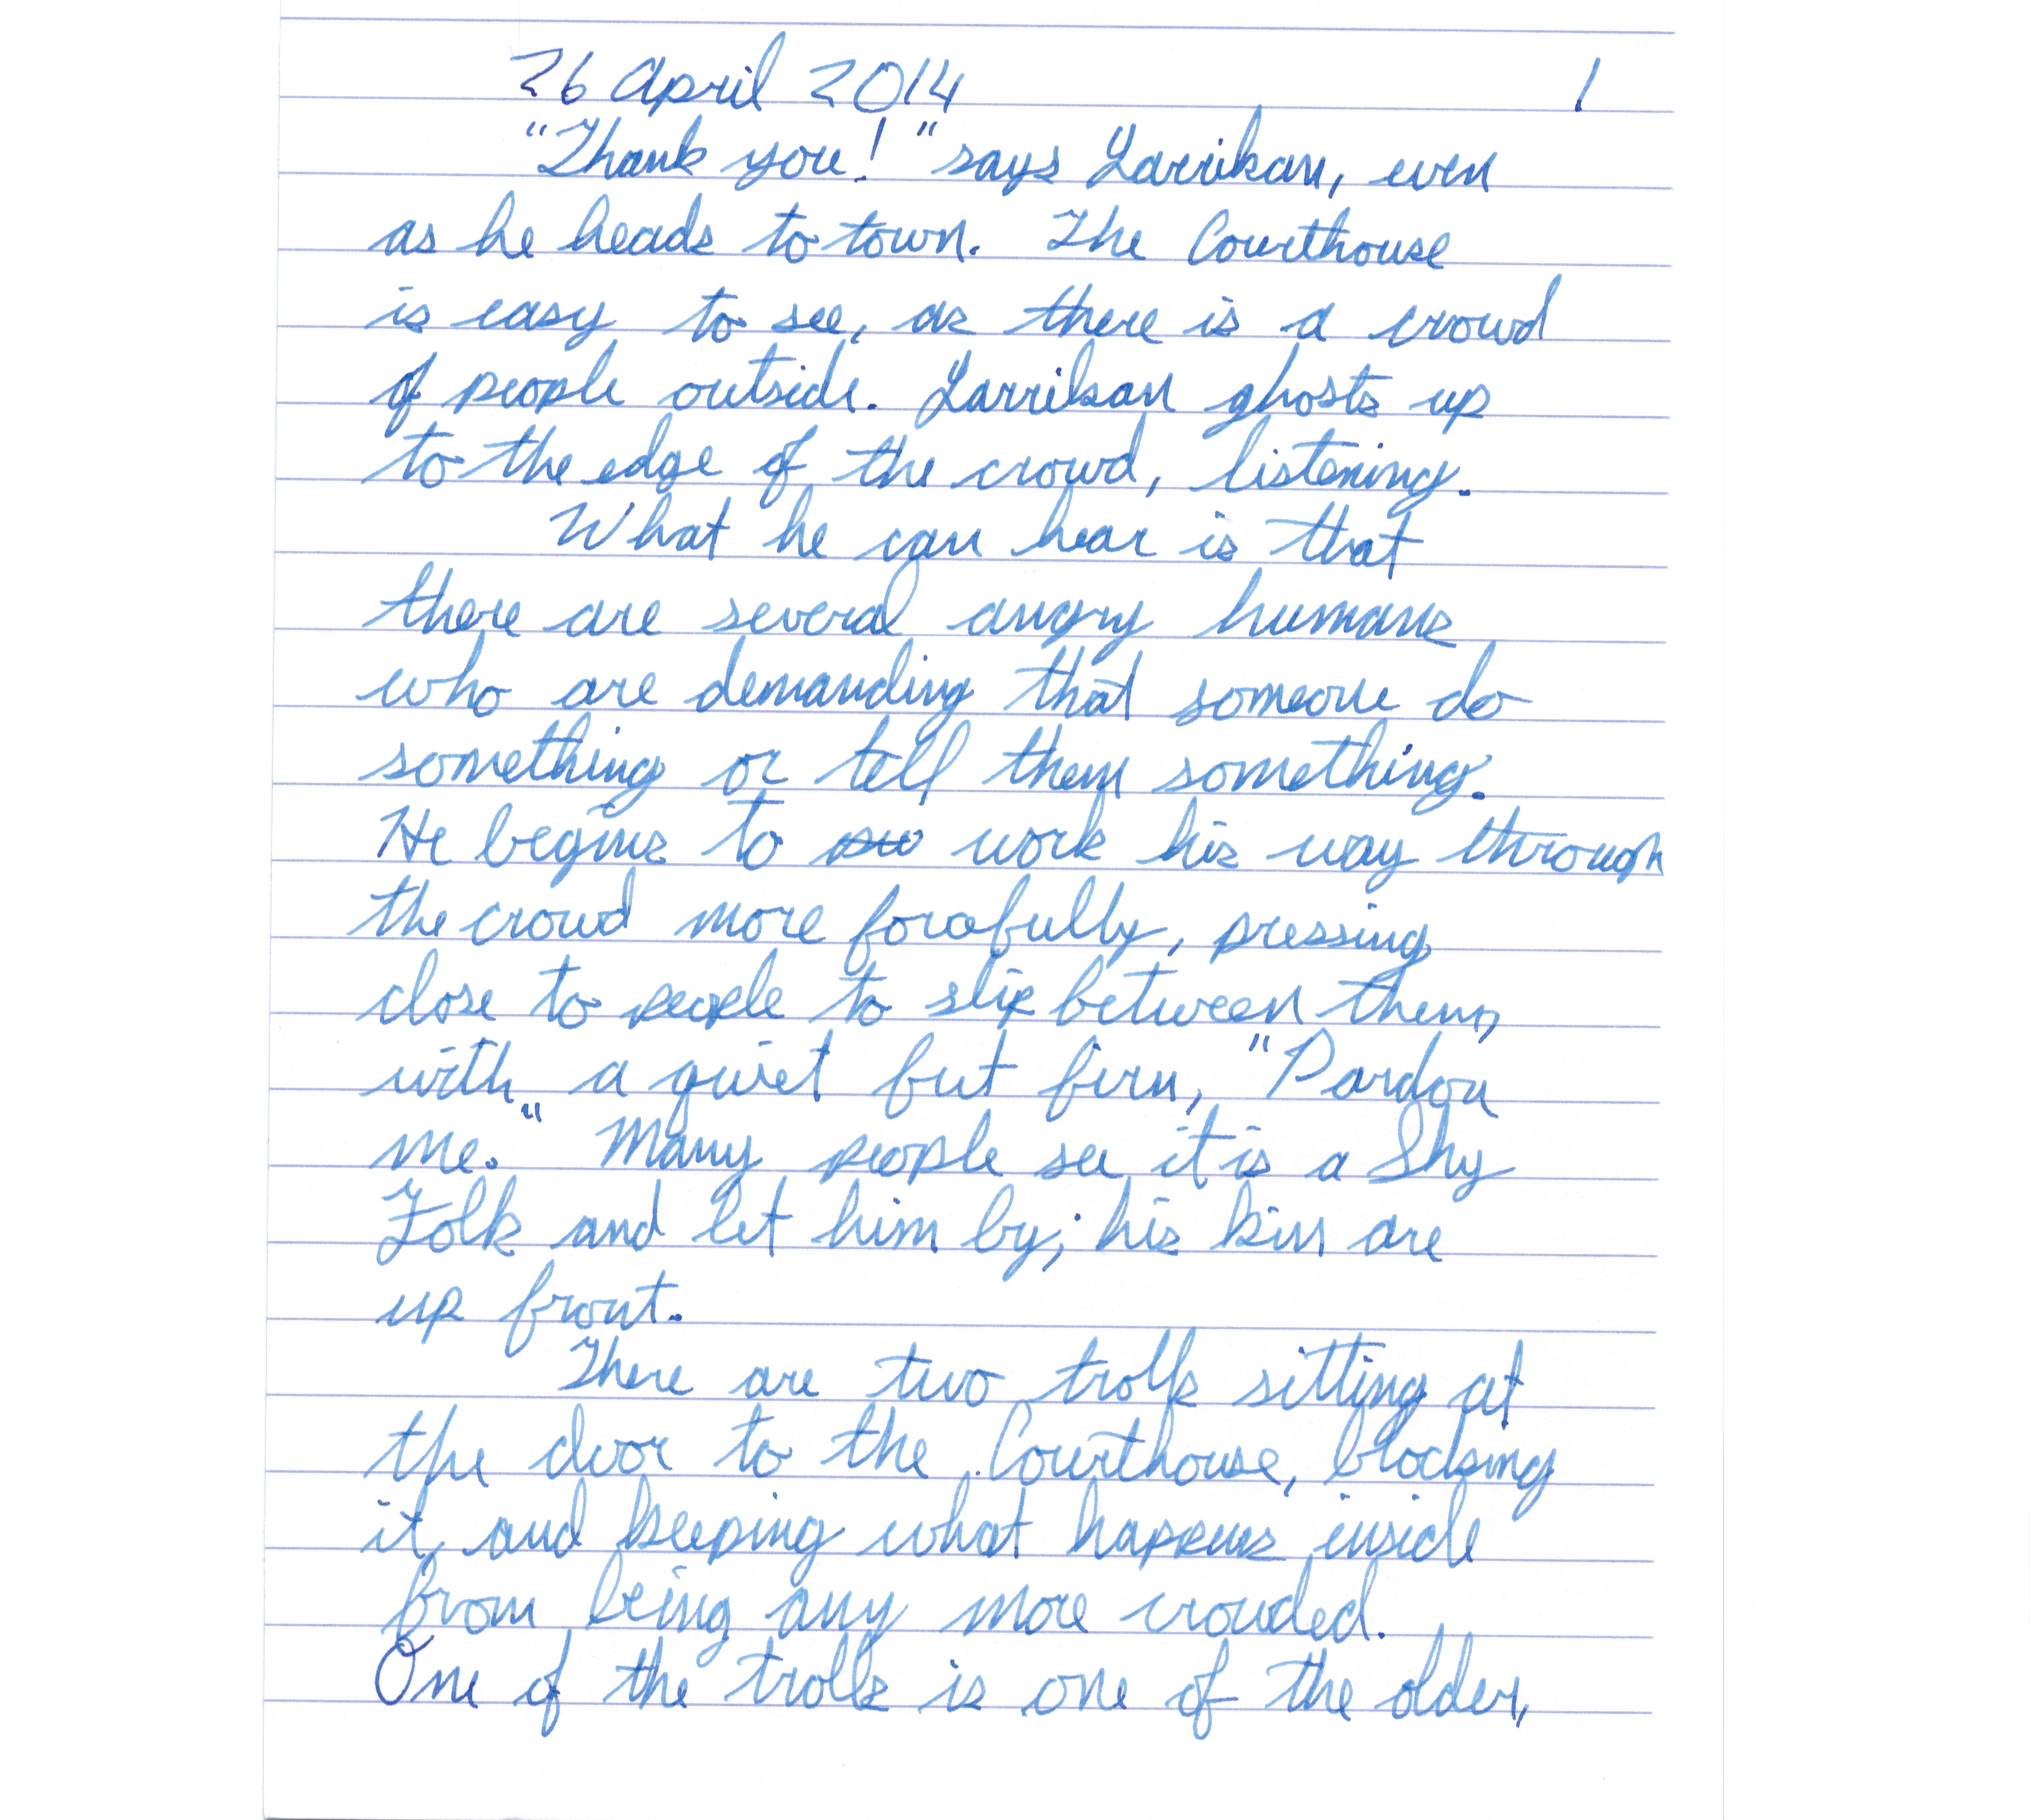 26 April 2014 1
"Thank you!" says Larrikan, even
as he heads to town. The Courthouse
is easy to see, as there is a crowd
of people outside. Larrikan ghosts up
to the edge of the crowd, listening.
What he can hear is that
there are several angry humans
who are demanding that someone do
something or tell them something.
He begins to work his way through
the crowd more forcefully, pressing
close to people to slip between them,
with a quiet but firm, "Pardon
me." Many people see it is a Shy
Folk and let him by; his kin are
up front.
There are two trolls sitting at
the door to the Courthouse, blocking
it, and keeping what happens inside
from being any more crowded.
One of the trolls is one of the older,